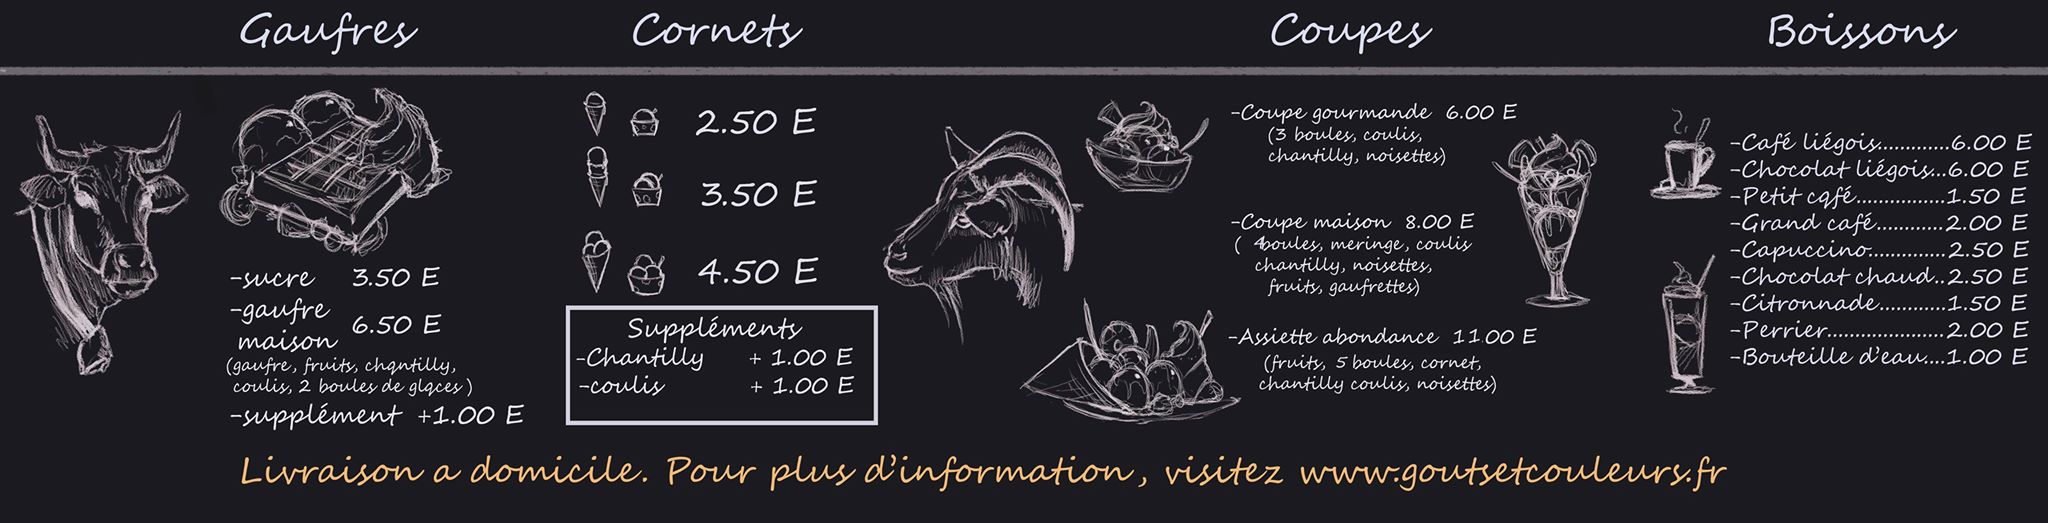 Gaufres
-sucre 3.50 E
-gaufre
maison 6.50 E
(gaufre, fruits, chantilly,
coulis, 2 boules de glaces )
-supplément +1.00 E
Cornets
2.50 E
3.50 E
4.50 E
Suppléments
-Chantilly + 1.00 E
-coulis + 1.00 E
Coupes
-Coupe gourmande 6.00 E
(3 boules, coulis,
chantilly, noisettes)
-Coupe maison 8.00 E
( 4boules, meringe, coulis
chantilly, noisettes,
fruits, gaufrettes)
-Assiette abondance 11.00 E
(fruits, 5 boules, cornet,
chantilly coulis, noisettes)
Boissons
-Café liégois.............6.00 E
-Chocolat liégois...6.00 E
-Petit café................1.50 E
-Grand café............2.00 E
-Capuccino..............2.50 E
-Chocolat chaud..2.50 E
-Citronnade............1.50 E
-Perrier.....................2.00 E
-Bouteille d'eau....1.00 E
Livraison a domicile. Pour plus d'information, visitez www.goutsetcouleurs.fr